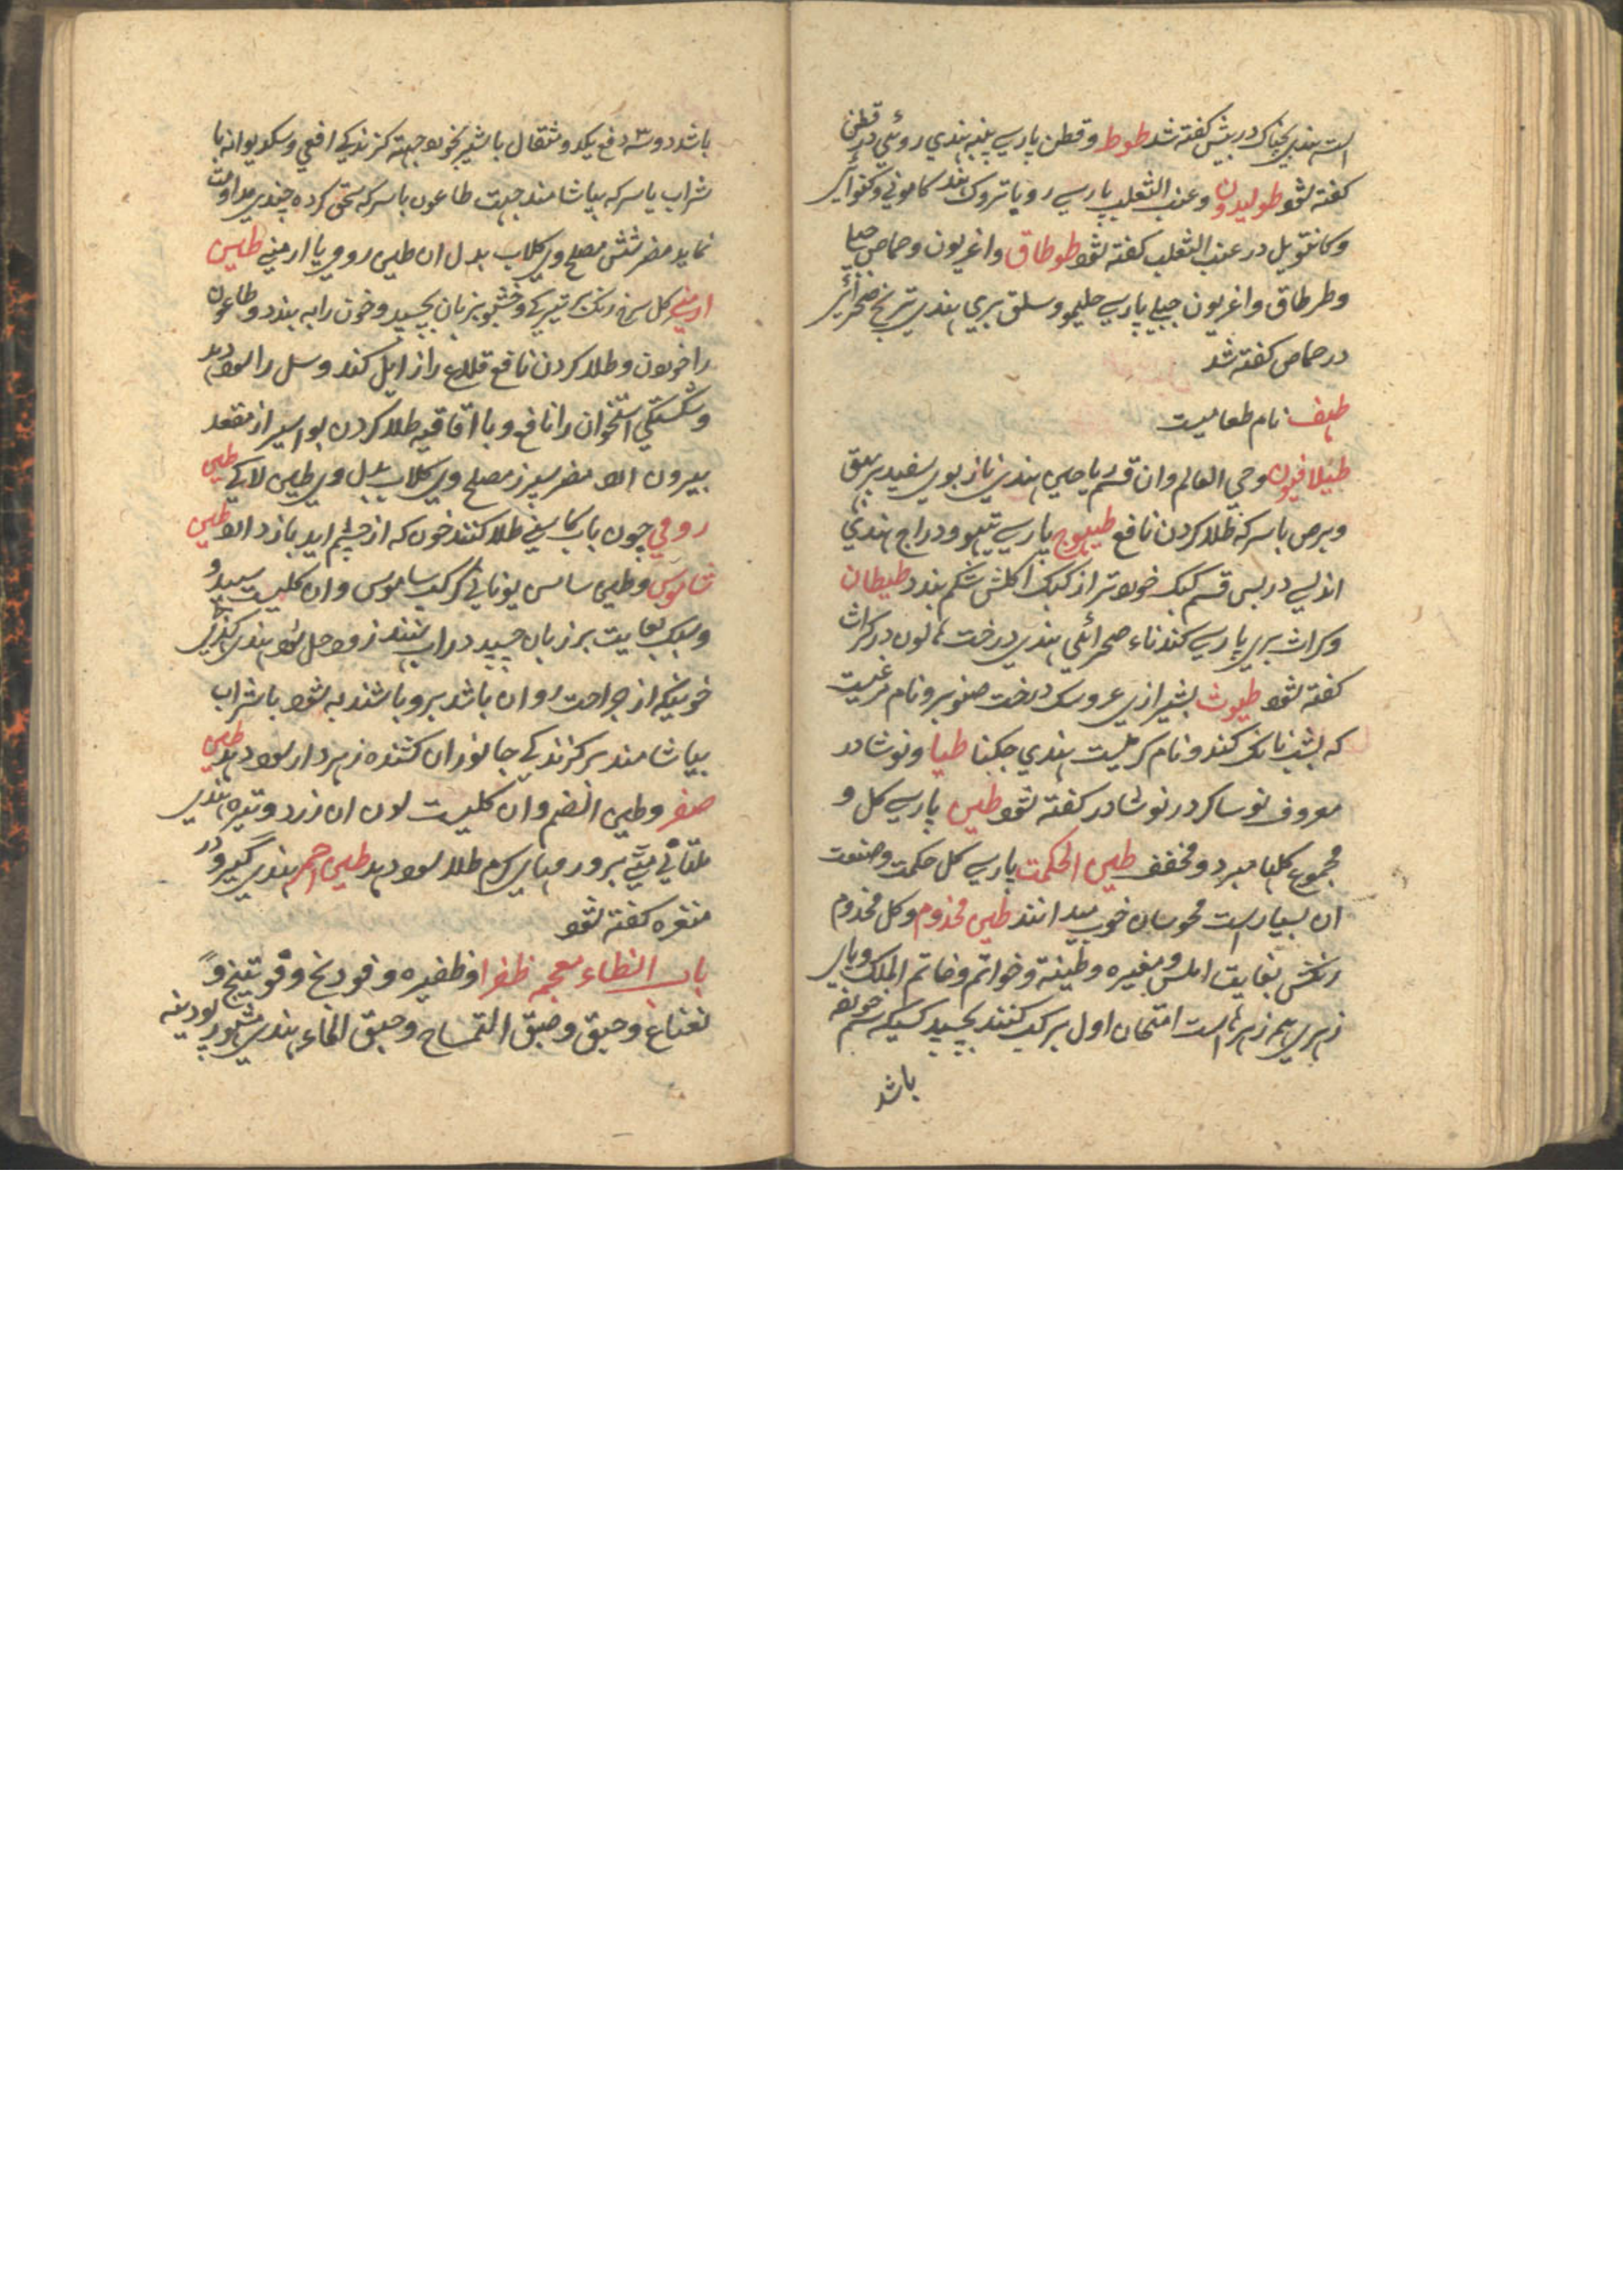 است هندی بچناک در بیش گفته شد طوط و قطن پارسی پنبه هندی روئی در قطن
گفته شود طولیدون و عنب الثعلب پارسی روباتروک هند کامونی و کنوائی
و کانقویل در عنب الثعلب گفته شود طوطاق و اغریون و حماض جبا
و طرطاق و اغریون جبا پارسی حلیمو و سلق بری هندی ترنج صحرائی
در حماض گفته شد
طیف نام طعامیست
طیلافیون و حی العالم و ان قسم یاحی هندی نازبوی سفید بر بهق
و برص با سرکه طلا کردن نافع طیهوج پارسی تیهو و دراج هندی
اندلی در بس قسم کبک خورد تر از کبک اکلش شکم بندد طیطان
و کراث بری پارسی کندناء صحرائی هندی درخت در کراث
گفته شود طیوث بشیرازی عروسک درخت صنوبر و نام مرغیست
که بشب بانک کند و نام کرمیست هندی جکنا طیا و نوشادر
معروف نوساکر در نوشادر گفته شود طین پارسی کل و
مجموع کلها مبرد و مجفف طین الحکمت پارسی کل حکمت و صنعت
ان بسیار است مجوسان خوب میدانند طین مخذوم و کل مخذوم
رنکش بغایت املس و مغیره و طینة و خواتم و خاتم الملک و پارسی
زهری همه زهرهاست امتحان اول بر لب کنند بچسپد کسیکه سم خورده
باشد
باشد دو سه دفع یکدو مثقال با شیر بخورد جهته کزندکی افعی و سک دیوانه با
شراب یا سرکه بیاشامند جهت طاعون با سرکه سحق کرده چندی مداومت
نماید مضر شش مصلح وی کلاب بدل ان طین رومی یا ارمنی طین
ارمنی کل سرخ رنک بر تیرکی و خوشبو بزبان بچسپد و خون را به بندد و طاعون
را خوردن و طلا کردن نافع قلاع را زایل کند و سل را سود دهد
و شکستکی استخوان را نافع و با اقاقیه طلا کردن بواسیر از مقعد
بیرون امد مضر سپرز مصلح وی کلاب بدل وی طین لاکی طین
رومی چون باب کاسنی طلا کنند خون که از چشم اید باز دارد طین
شاموس و طین سامس یونانی کوکب ساموس و ان کلیست سپید و
و سبک بغایت بر زبان چسپد در اب نهند زود حل شود هندی
خونیکه از جراحت روان باشد برو پاشند به شود با شراب
بیاشامند بر کزندکی جانوران کشنده زهردار سود دهد طین
صفر و طین الضم و ان کلیست لون ان زرد و تیره هندی
ملتانی متی بر ورمهای کرم طلا سود دهد طین احمر هندی کیرو در
مغره گفته شود
باب الظاء معجمه ظفرا و ظفیره و فودنج و فوتینج و
نعناع و حبق و حبق التمساح و حبق الماء هندی مشهور پودینه